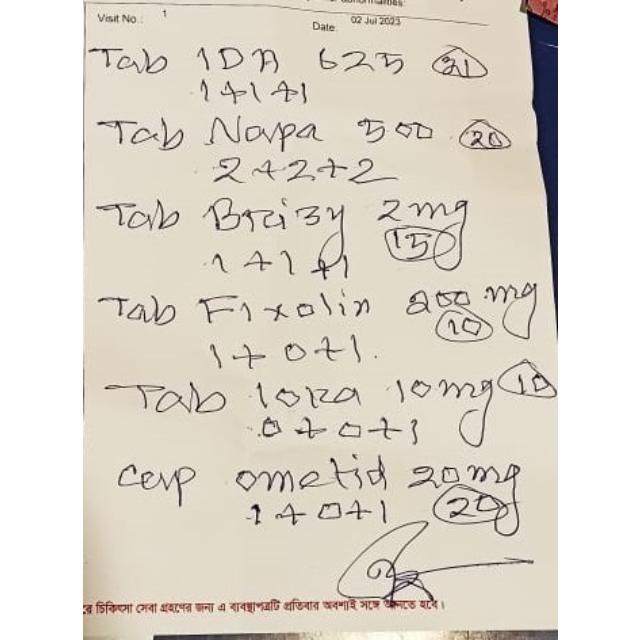 Visit No.: 1
Date: 02 Jul 2023
Tab 1DA 625 21
1+1+1
Tab Napa 500 20
2+2+2
Tab 2mg
15
1+1+1
Tab Fixolin 200 mg
10
1+0+1.
Tab lora 10mg 10
0+0+1
cap ometid 20mg
1+0+1 20
চিকিৎসা সেবা গ্রহণের জন্য এ ব্যবস্থাপত্রটি প্রতিবার অবশ্যই সঙ্গে আনতে হবে।